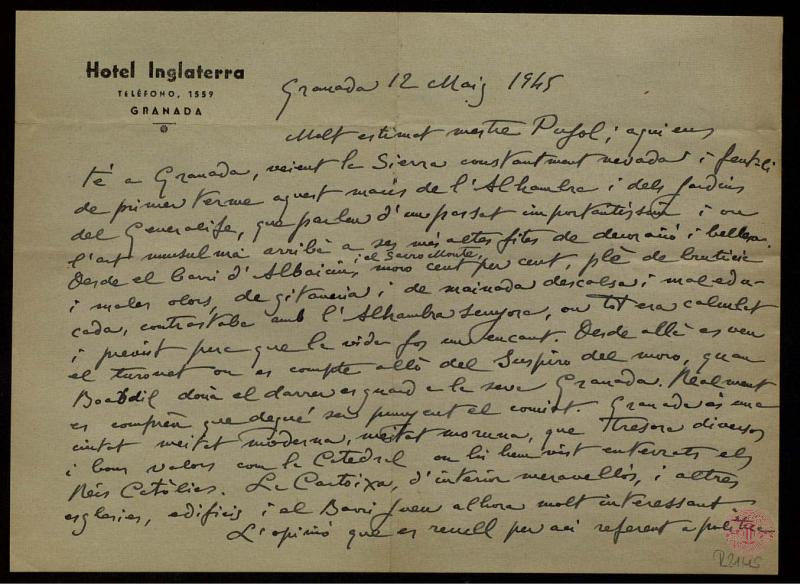 Hotel Inglaterra
TELÉFONO, 1559
GRANADA
Granada 12 Maig 1945
Molt estimat mestre Pujol; aqui ens
té a Granada, veient la Sierra constantment nevada i fentli
de primer terme aquest marc de l'Alhambra i dels Jardins
del Generalife, que parlen d'un passat importantíssim i on
l'art musulmà arribà a ses més altes fites de decoració i bellesa.
Desde el barri d'Albaicin, i el Sacro Monte, moro cent per cent, plè de brutícia
i males olors, de gitaneria i de mainada descalsa i mal edu-
cada, contrastaba amb l'Alhambra senyora, on tot era calculat
i previst perc que la vida fos un encant. Desde allà es veu
el turonet on es compte allò del Suspiro del moro, quan
Boabdil donà el darrer esguard a la seva Granada. Realment
es comprèn que degué ser punyent el comiat. Granada és una
ciutat meitat moderna, meitat moruna, que tresora diversos
i bons valors com la Catedral on hi hem vist enterrats els
Reis Catòlics. La Cartoixa, d'interior meravellòs, i altres
esglesies, edificis i el Barri Jueu alhora molt interessant
L'opinió que es recull per aci referent a politica
R2145